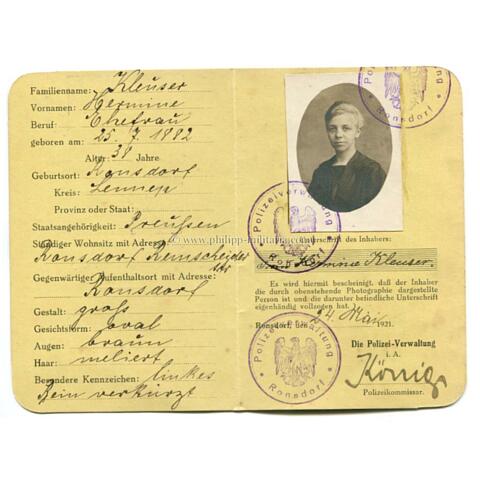 Familienname: Kleuser
Vornamen: Hermine
Beruf: Ehefrau
geboren am: 25. 7. 1882
Alter: 38 Jahre
Geburtsort: Ronsdorf
Kreis: Lennep
Provinz oder Staat:
Staatsangehörigkeit: Preussen
Ständiger Wohnsitz mit Adresse:
Ronsdorf Remscheider
Str
Gegenwärtiger Aufenthaltsort mit Adresse:
Ronsdorf
Gestalt: groß
Gesichtsform: oval
Augen: braun
Haar: meliert
Besondere Kennzeichen: linkes
Bein verkürzt
Ronsdorf
Polizeiverwaltung
Ronsdorf
© www.philipp-militaria.com
Unterschrift des Inhabers:
Frau Hermine Kleuser.
Es wird hiermit bescheinigt, daß der Inhaber
die durch obenstehende Photographie dargestellte
Person ist und die darunter befindliche Unterschrift
eigenhändig vollzogen hat.
Ronsdorf, den 24. Mai 1921.
Polizeiverwaltung
Ronsdorf
Die Polizei-Verwaltung
i. A.
König
Polizeikommissar.